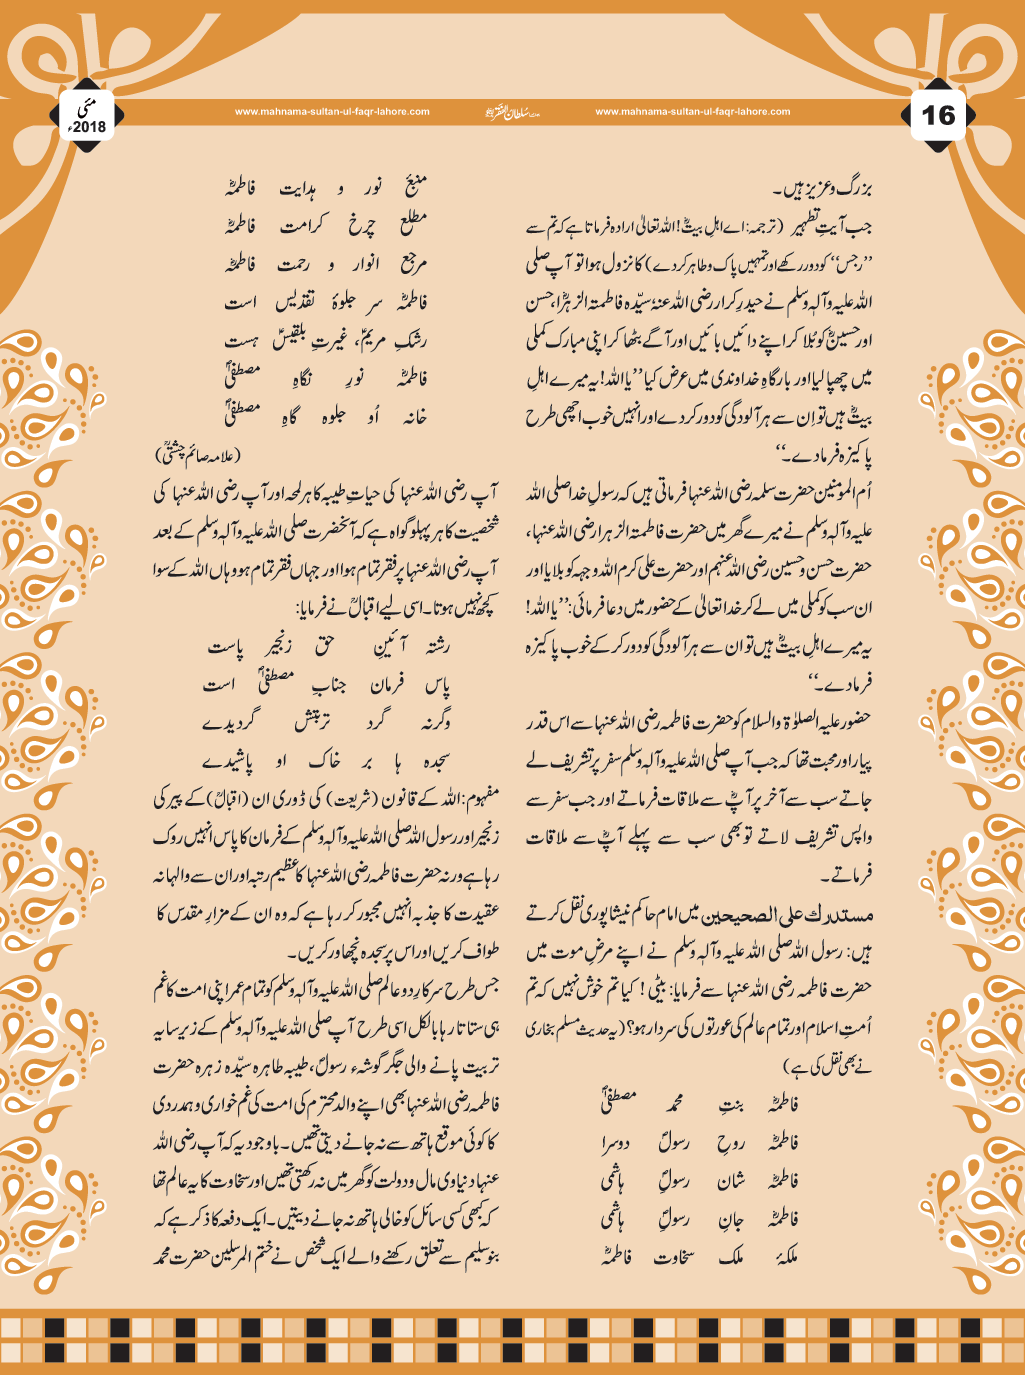 مئی
2018ء
www.mahnama-sultan-ul-faqr-lahore.com
ماہنامہ سلطان الفقر
www.mahnama-sultan-ul-faqr-lahore.com
16
بزرگ و عزیز ہیں۔
جب آیتِ تطہیر (ترجمہ: اے اہلِ بیتؓ! اللہ تعالیٰ ارادہ فرماتا ہے کہ تم سے
’’رجس‘‘ کو دور رکھے اور تمہیں پاک و طاہر کر دے) کا نزول ہوا تو آپ صلی
اللہ علیہ وآلہٖ وسلم نے حیدرِ کرار رضی اللہ عنہٗ سیّدہ فاطمتہ الزہراؓ، حسن
اور حسینؓ کو بُلا کر اپنے دائیں بائیں اور آگے بٹھا کر اپنی مبارک کملی
میں چھپا لیا اور بارگاہِ خداوندی میں عرض کیا ’’یا اللہ! یہ میرے اہلِ
بیتؓ ہیں تو اِن سے ہر آلودگی کو دور کر دے اور انہیں خوب اچھی طرح
پاکیزہ فرما دے۔‘‘
اُم المومنین حضرت سلمہ رضی اللہ عنہا فرماتی ہیں کہ رسولِ خدا صلی اللہ
علیہ وآلہٖ وسلم نے میرے گھر میں حضرت فاطمتہ الزہرا رضی اللہ عنہا،
حضرت حسن و حسین رضی اللہ عنہم اور حضرت علی کرم اللہ وجہہ کو بلایا اور
ان سب کو کملی میں لے کر خدا تعالیٰ کے حضور میں دعا فرمائی: ’’یا اللہ!
یہ میرے اہلِ بیتؓ ہیں تو ان سے ہر آلودگی کو دور کر کے خوب پاکیزہ
فرما دے۔‘‘
حضور علیہ الصلوٰۃ والسلام کو حضرت فاطمہ رضی اللہ عنہا سے اس قدر
پیار اور محبت تھا کہ جب آپ صلی اللہ علیہ وآلہٖ وسلم سفر پر تشریف لے
جاتے سب سے آخر پر آپؓ سے ملاقات فرماتے اور جب سفر سے
واپس تشریف لاتے تو بھی سب سے پہلے آپؓ سے ملاقات
فرماتے۔
مستدرك علی الصحیحین میں امام حاکم نیشاپوری نقل کرتے
ہیں: رسول اللہ صلی اللہ علیہ وآلہٖ وسلم نے اپنے مرضِ موت میں
حضرت فاطمہ رضی اللہ عنہا سے فرمایا: بیٹی! کیا تم خوش نہیں کہ تم
اُمتِ اسلام اور تمام عالم کی عورتوں کی سردار ہو؟ (یہ حدیث مسلم بخاری
نے بھی نقل کی ہے)
فاطمہؓ بنتِ محمد مصطفیؐ
فاطمہؓ روحِ رسولؐ دوسرا
فاطمہؓ شان رسولِؐ ہاشمی
فاطمہؓ جانِ رسولِؐ ہاشمی
ملکۂ ملک سخاوت فاطمہؓ
منبعٔ نور و ہدایت فاطمہؓ
مطلع چرخ کرامت فاطمہؓ
مرجع انوار و رحمت فاطمہؓ
فاطمہؓ سر جلوۂ تقدیس است
رشکِ مریمؑ، غیرتِ بلقیسؑ ہست
فاطمہؓ نورِ نگاہِ مصطفیؐ
خانہ اُو جلوہ گاہِ مصطفیؐ
(علامہ صائم چشتیؒ)
آپ رضی اللہ عنہا کی حیاتِ طیبہ کا ہر لمحہ اور آپ رضی اللہ عنہا کی
شخصیت کا ہر پہلو گواہ ہے کہ آنحضرت صلی اللہ علیہ وآلہٖ وسلم کے بعد
آپ رضی اللہ عنہا پر فقر تمام ہوا اور جہاں فقر تمام ہو وہاں اللہ کے سوا
کچھ نہیں ہوتا۔ اسی لیے اقبالؒ نے فرمایا:
رشتہ آئینِ حق زنجیر پاست
پاس فرمان جنابِ مصطفیؐ است
وگرنہ گرد تربتش گردیدے
سجدہ ہا بر خاک او پاشیدے
مفہوم: اللہ کے قانون (شریعت) کی ڈوری ان (اقبالؒ) کے پیر کی
زنجیر اور رسول اللہ صلی اللہ علیہ وآلہٖ وسلم کے فرمان کا پاس انہیں روک
رہا ہے ورنہ حضرت فاطمہ رضی اللہ عنہا کا عظیم رتبہ اور ان سے والہانہ
عقیدت کا جذبہ انہیں مجبور کر رہا ہے کہ وہ ان کے مزارِ مقدس کا
طواف کریں اور اس پر سجدہ نچھاور کریں۔
جس طرح سرکارِ دو عالم صلی اللہ علیہ وآلہٖ وسلم کو تمام عمر اپنی امت کا غم
ہی ستاتا رہا بالکل اسی طرح آپ صلی اللہ علیہ وآلہٖ وسلم کے زیرِ سایہ
تربیت پانے والی جگر گوشہء رسولؐ، طیبہ طاہرہ سیّدہ زہرہ حضرت
فاطمہ رضی اللہ عنہا بھی اپنے والد محترم کی امت کی غم خواری و ہمدردی
کا کوئی موقع ہاتھ سے نہ جانے دیتی تھیں۔ باوجود یہ کہ آپ رضی اللہ
عنہا دنیاوی مال و دولت کو گھر میں نہ رکھتی تھیں اور سخاوت کا یہ عالم تھا
کہ کبھی کسی سائل کو خالی ہاتھ نہ جانے دیتیں۔ ایک دفعہ کا ذکر ہے کہ
بنو سلیم سے تعلق رکھنے والے ایک شخص نے ختم المرسلین حضرت محمد